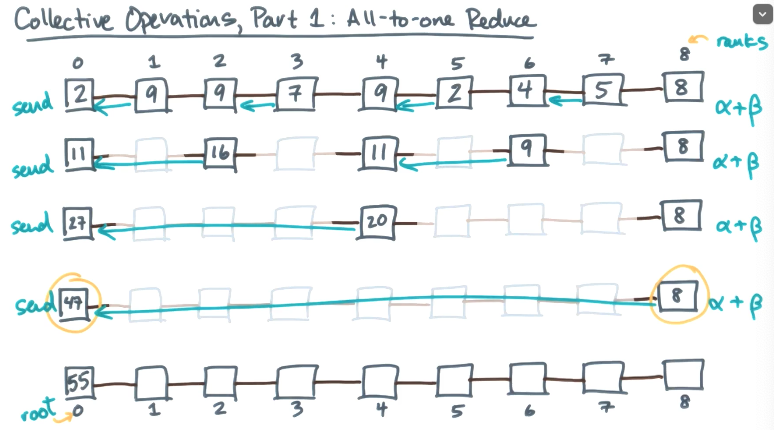 Collective Operations, Part 1: All-to-one Reduce
0 1 2 3 4 5 6 7 8 ranks
send 2 9 9 7 9 2 4 5 8 α+β
send 11 16 11 9 8 α+β
send 27 20 8 α+β
send 47 8 α+β
55
root 0 1 2 3 4 5 6 7 8